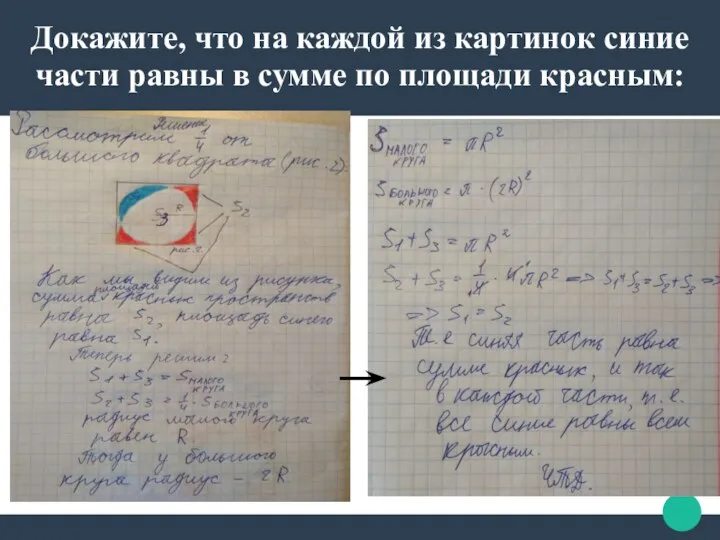 Докажите, что на каждой из картинок синие
части равны в сумме по площади красным:
Решение
Рассмотрим 1/4 от
большого квадрата (рис. 2).
R
S3
S2
рис. 2.
Как мы видим из рисунка,
площади
сумма красных пространств
равна S2, площадь синего
равна S1.
Теперь решим:
S1 + S3 = S МАЛОГО КРУГА
S2 + S3 = 1/4 · S БОЛЬШОГО КРУГА
радиус малого круга
равен R.
Тогда у большого
круга радиус – 2R.
S МАЛОГО КРУГА = πR²
S БОЛЬШОГО КРУГА = π · (2R)²
S1 + S3 = πR²
S2 + S3 = 1/4 · 4πR² => S1 + S3 = S2 + S3 =>
=> S1 = S2
Т.е синяя часть равна
сумме красных, и так
в каждой части, т.е.
все синие равны всем
красным.
ЧТД.